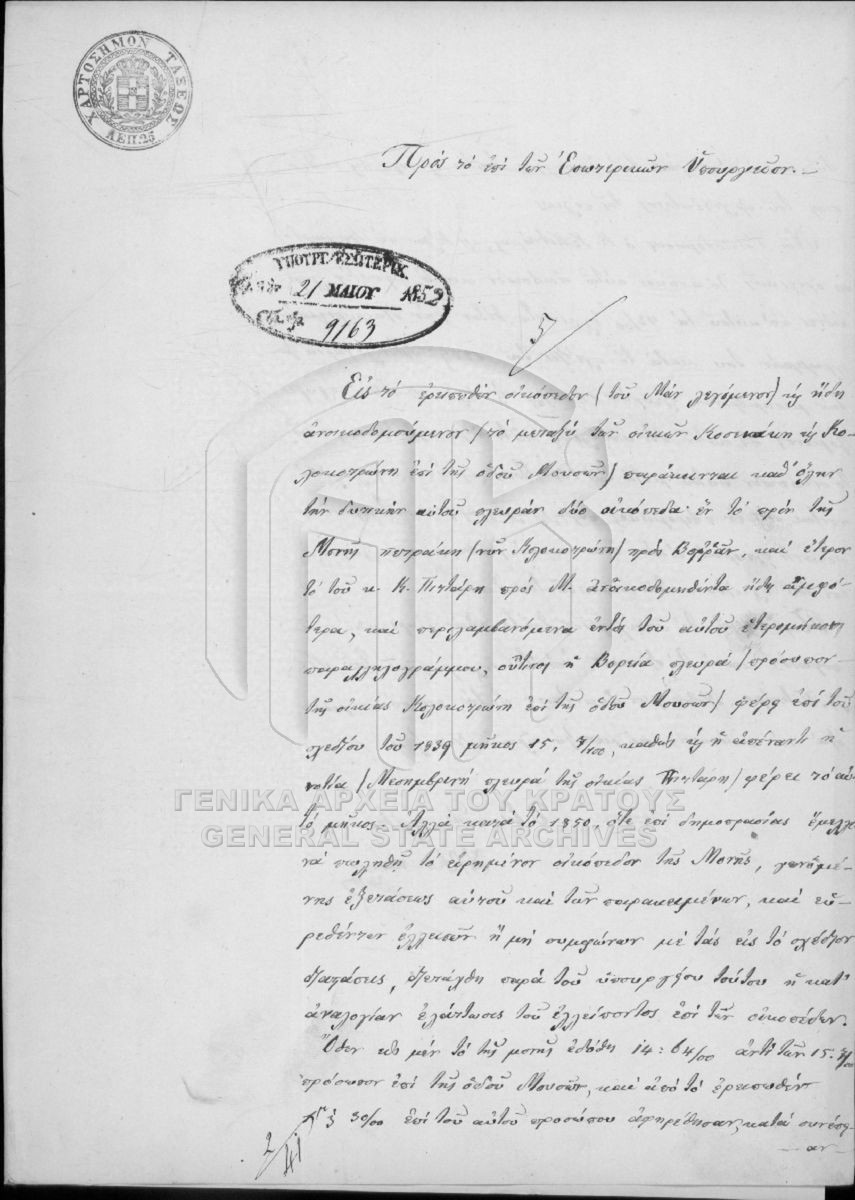 ΧΑΡΤΟΣΗΜΟΝ ΤΑΞΕΩΣ
ΛΕΠ.25
Πρὸς τὸ ἐπὶ τῶν Ἐσωτερικῶν Ὑπουργεῖον.—
ΥΠΟΥΡΓ. ΕΣΩΤΕΡΙΚ.
21 ΜΑΙΟΥ 1852
9163
5/
Εἰς τὸ ἐρειπωθὲν οἰκόπεδον (τοῦ Μὰν λεγόμενον) κ ἤδη
ἀνοικοδομούμενον (τὸ μεταξὺ τῶν οἰκιῶν κ Κο-
λοκοτρώνη ἐπὶ τῆς ὁδοῦ Μουσῶν) παράκεινται καθ' ὅλην
τὴν δυτικὴν αὐτοῦ πλευρὰν δύο οἰκόπεδα· ἓν τὸ πρὶν τῆς
Μονῆς πετράκη (νῦν Κολοκοτρώνη) πρὸς Βοῤῥᾶν, καὶ ἕτερον
τὸ τοῦ κ. Κ. Πιττάρη πρὸς Μ. ἀνοικοδομηθέντα ἤδη ἀμφό-
τερα, καὶ περιλαμβανόμενα ἐντὸς τοῦ αὐτοῦ ἑτερομήκους
παραλληλογράμμου, οὗτινος ἡ Βορεία πλευρὰ (πρόσωπον
τῆς οἰκίας Κολοκοτρώνη ἐπὶ τῆς ὁδοῦ Μουσῶν) φέρει ἐπὶ τοῦ
σχεδίου τοῦ 1839 μῆκος 15, /100, καθὼς κ ἡ ἀπέναντι ἡ
νοτία (Μεσημβρινὴ πλευρὰ τῆς οἰκίας Πιττάρη) φέρει τὸ αὐ-
τὸ μῆκος. Ἀλλὰ κατὰ τὸ 1850, ὅτε ἐπὶ δημοπρασίας ἔμελλε
νὰ πωληθῇ τὸ εἰρημένον οἰκόπεδον τῆς Μονῆς, γενομέ-
νης ἐξετάσεως αὐτοῦ καὶ τῶν παρακειμένων, καὶ εὑ-
ρεθέντων ἐλλειπῶν ἢ μὴ συμφώνων μὲ τὰς εἰς τὸ σχέδιον
διαστάσεις, διετάχθη παρὰ τοῦ ὑπουργείου τούτου ἡ κατ'
ἀναλογίαν ἐλάττωσις τοῦ ἐλλείποντος ἐπὶ τῶν οἰκοπέδων.
Ὅθεν εἰς μὲν τὸ τῆς μονῆς ἐδόθη 14: 64/00 ἀντὶ τῶν 15.
πρόσωπον ἐπὶ τῆς ὁδοῦ Μουσῶν, καὶ ἀπὸ τὸ ἐρειπωθὲν
30/00 ἐπὶ τοῦ αὐτοῦ προσώπου ἀφῃρέθησαν, κατὰ συνέπει-
αν
2/41
ΓΕΝΙΚΑ ΑΡΧΕΙΑ ΤΟΥ ΚΡΑΤΟΥΣ
GENERAL STATE ARCHIVES